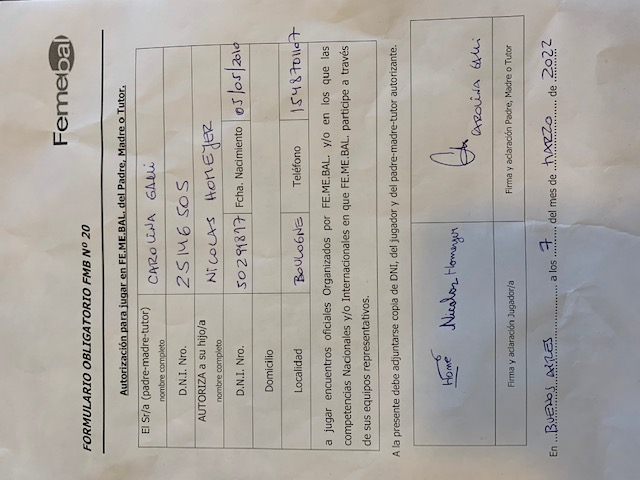 Femebal
FORMULARIO OBLIGATORIO FMB Nº 20
Autorización para jugar en FE.ME.BAL. del Padre, Madre o Tutor.
El Sr/a (padre-madre-tutor) CAROLINA GALLI
nombre completo
D.N.I. Nro. 25146505
AUTORIZA a su hijo/a NICOLAS HOMEYER
nombre completo
D.N.I. Nro. 50291897 Fcha. Nacimiento 05/05/2010
Domicilio
Localidad BOULOGNE Teléfono 1548701107
a jugar encuentros oficiales Organizados por FE.ME.BAL. y/o en los que las
competencias Nacionales y/o Internacionales en que FE.ME.BAL. participe a través
de sus equipos representativos.
A la presente debe adjuntarse copia de DNI, del jugador y del padre-madre-tutor autorizante.
Home Nicolas Homeyer CAROLINA GALLI
Firma y aclaración Jugador/a Firma y aclaración Padre, Madre o Tutor
En BUENOS AIRES a los 7 del mes de MARZO de 2022